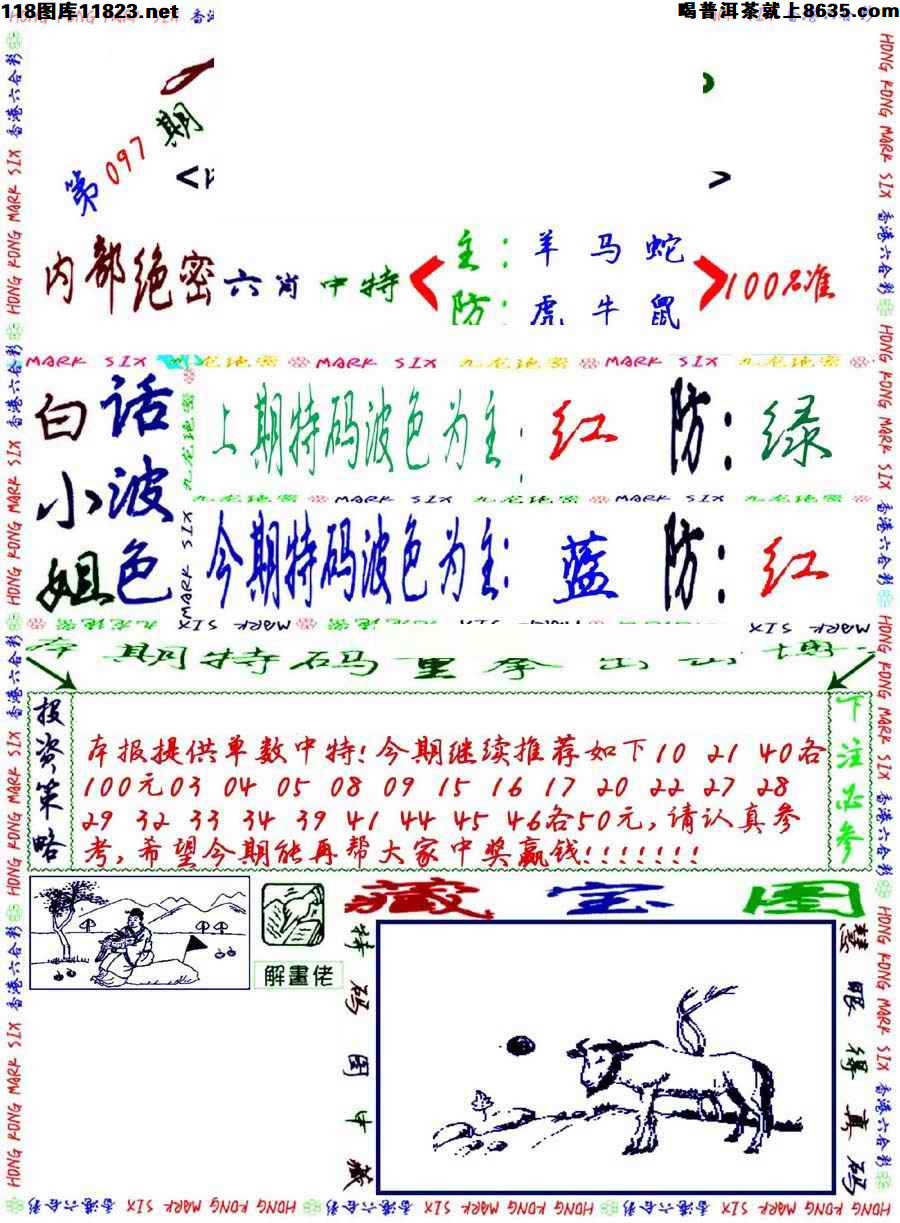 118图库11823.net
喝普洱茶就上8635.com
第097期
内部绝密六肖中特
主:羊马蛇
防:虎牛鼠
100%准
MARK SIX 九龙绝密 MARK SIX 九龙绝密 MARK SIX 九龙绝密
白话小波姐色
上期特码波色为主:红 防:绿
九龙绝密 MARK SIX 九龙绝密 MARK SIX 九龙绝密
今期特码波色为主:蓝 防:红
投资策略
本报提供单数中特!今期继续推荐如下10 21 40各
100元03 04 05 08 09 15 16 17 20 22 27 28
29 32 33 34 39 41 44 45 46各50元,请认真参
考,希望今期能再帮大家中奖赢钱!!!!!!!
下注必参
解畫佬
藏宝图
特码图中藏
慧眼得真码
HONG KONG MARK SIX 香港六合彩